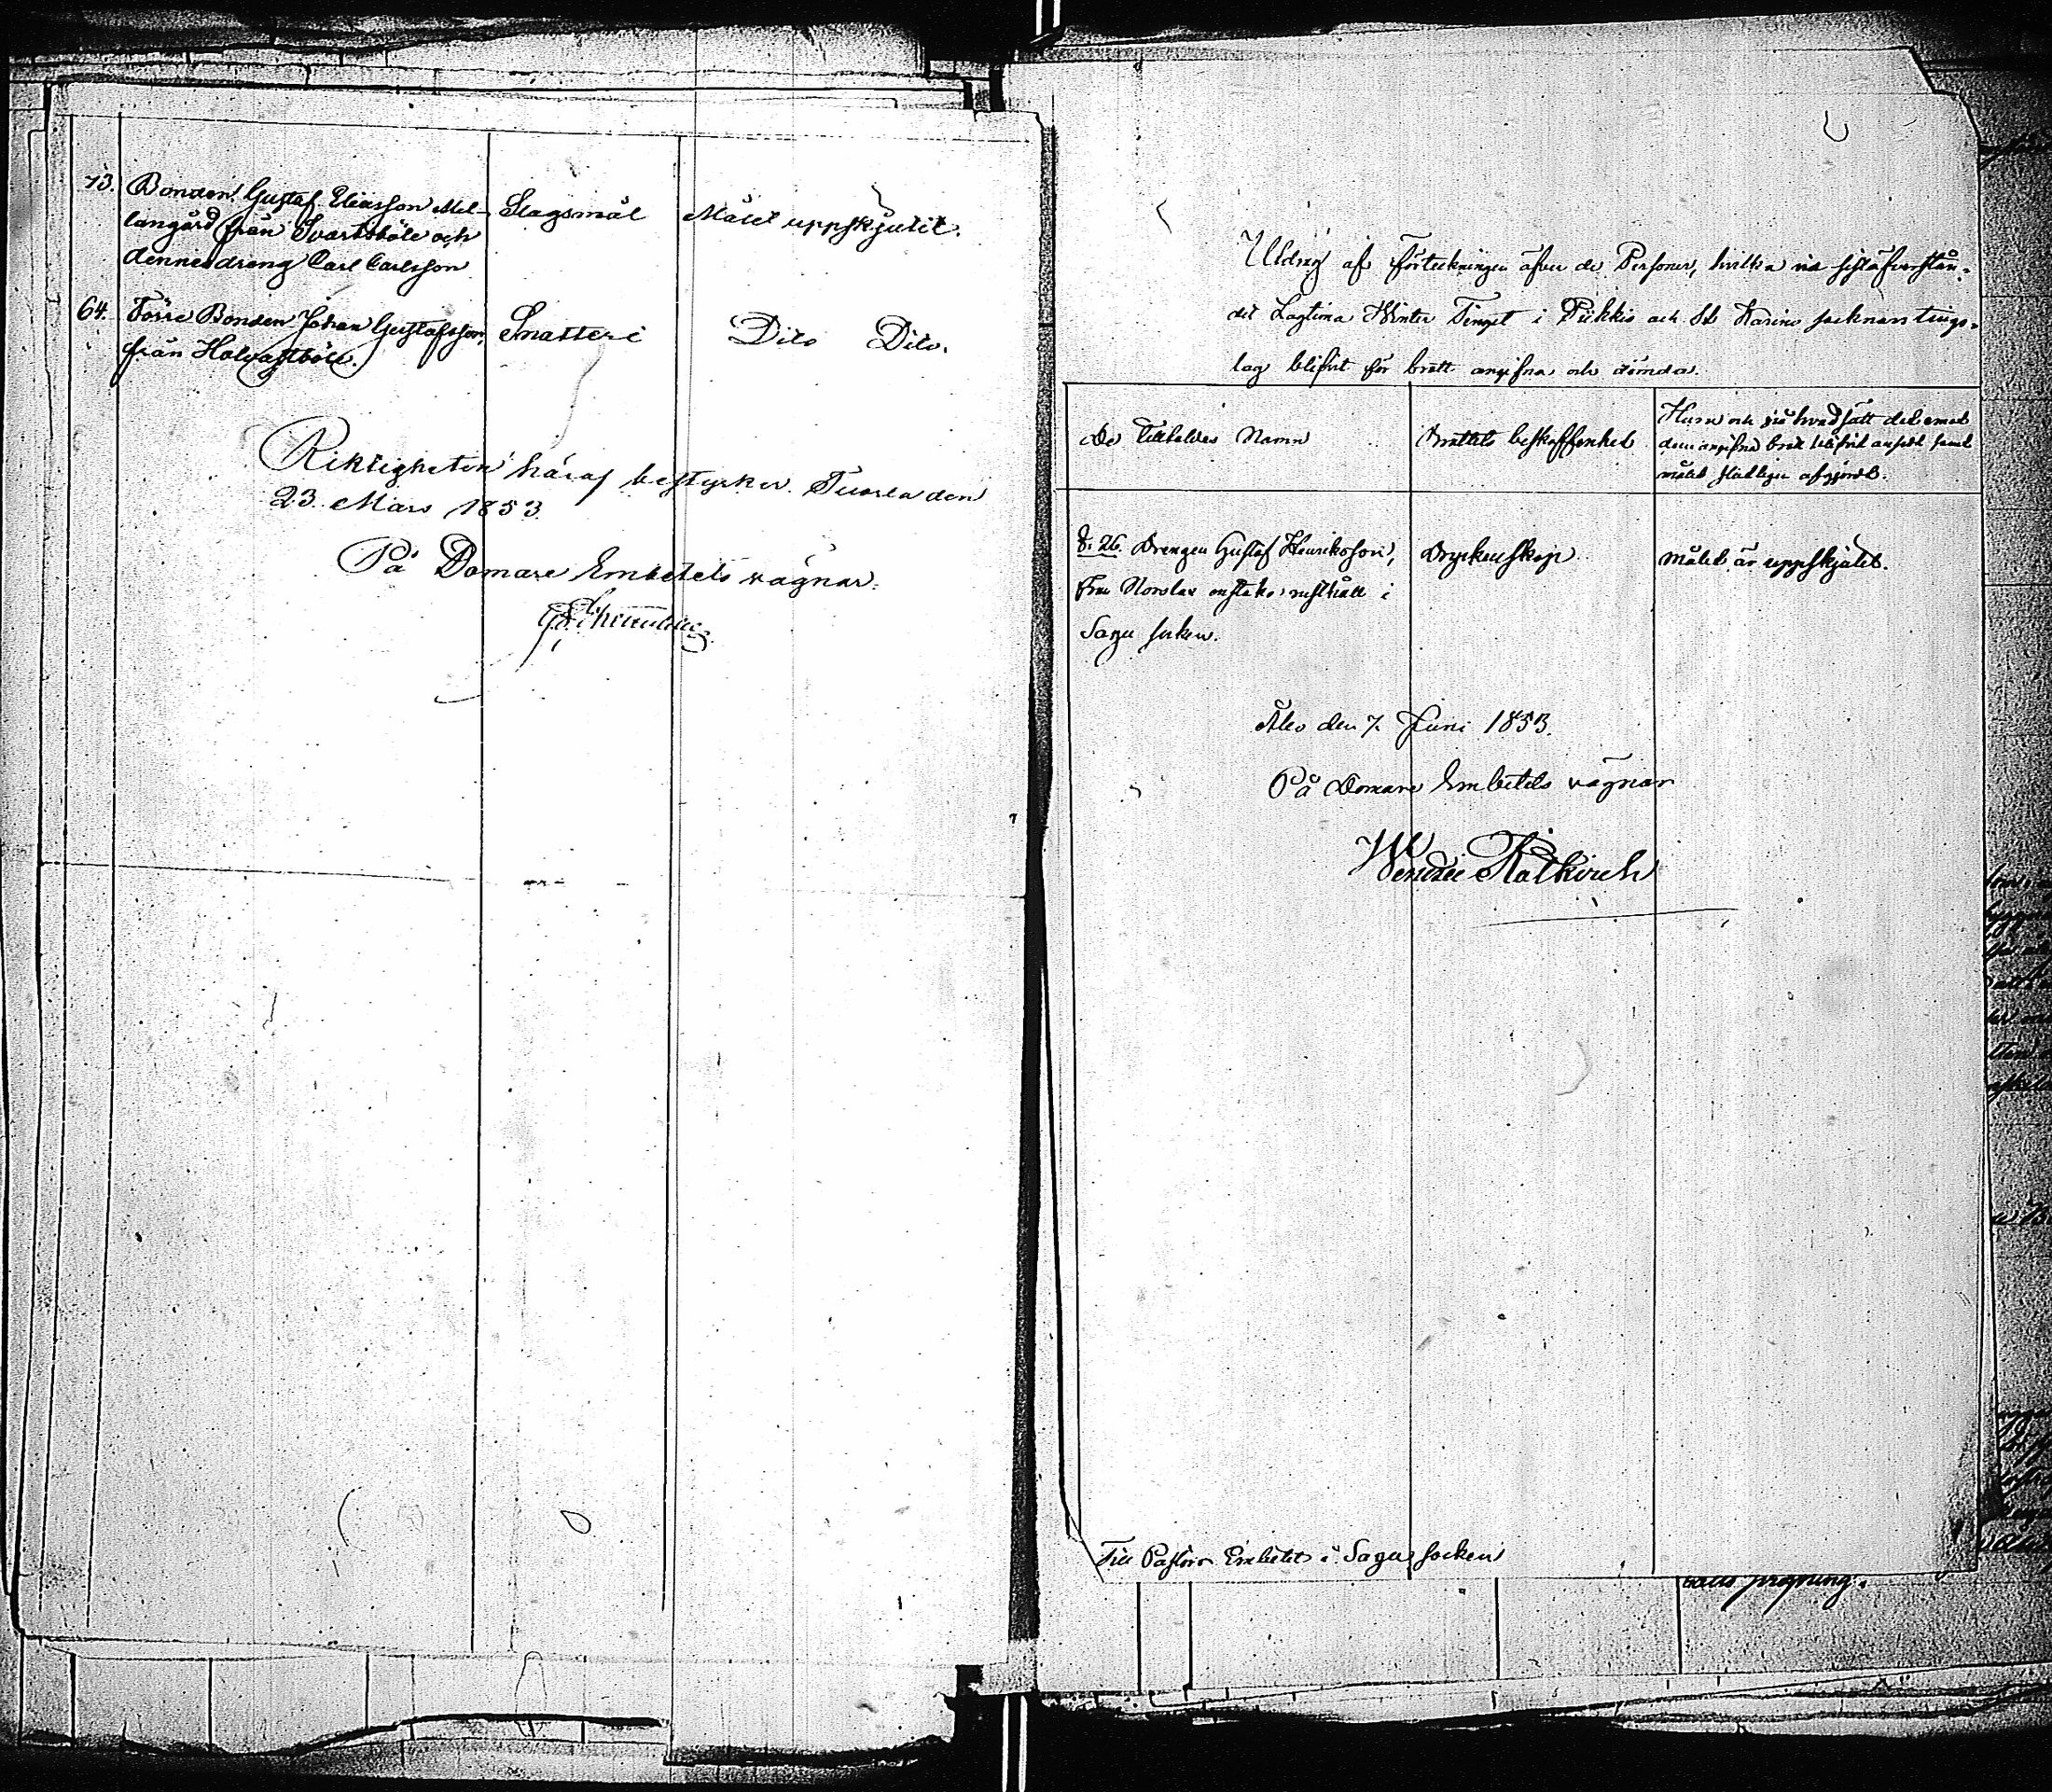 73. Bonden Gustaf Eliasson Mel-
langård från Svartsböle och
dennes dreng Carl Carlsson
Slagsmål
Målet uppskjutit.
64. Förre Bonden Johan Gustafsson,
från Halvastböle.
Snatteri
Dito Dito.
Riktigheten häraf bestyrker. Tuorla den
23. Mars 1853.
På Domare Embetets vägnar:
Utdrag af förteckningen öfver de Personer, hvilka vid sistöfverstån-
det Lagtima Winter Tinget i Pikkis och St Karins socknars tings-
lag blifvit för brott angifna och dömda.
De tilltalades Namn
Brottets beskaffenhet
Huru och på hvad sätt det emot
dem angifna brott blifvit ansedt samt
målet slutligen afgjordt.
§. 26. Drengen Gustaf Henriksson,
från rusthåll i
Sagu socken.
Dryckenskap
Målet är uppskjutet.
Åbo den 7. Juni 1853.
På Domare Embetets vägnar
Till Pastors Embetet i Sagu socken